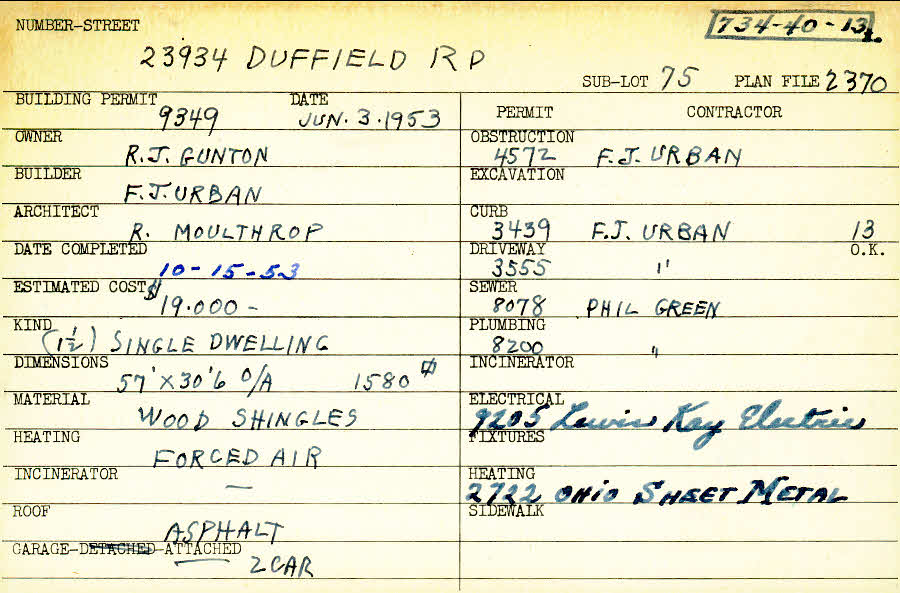 734-40-13
NUMBER-STREET
23934 DUFFIELD RD
SUB-LOT 75 PLAN FILE 2370
BUILDING PERMIT 9349 DATE JUN. 3. 1953
OWNER R.J. GUNTON
BUILDER F.J. URBAN
ARCHITECT R. MOULTHROP
DATE COMPLETED 10-15-53
ESTIMATED COST $19.000 -
KIND (1½) SINGLE DWELLING
DIMENSIONS 57' X 30'6 O/A 1580
MATERIAL WOOD SHINGLES
HEATING FORCED AIR
INCINERATOR —
ROOF ASPHALT
GARAGE-DETACHED-ATTACHED 2 CAR
PERMIT CONTRACTOR
OBSTRUCTION 4572 F.J. URBAN
EXCAVATION
CURB 3439 F.J. URBAN 13
DRIVEWAY 3555 " O.K.
SEWER 8078 PHIL GREEN
PLUMBING 8200 "
INCINERATOR
ELECTRICAL 9205 Lewis Kay Electric
FIXTURES
HEATING 2722 OHIO SHEET METAL
SIDEWALK